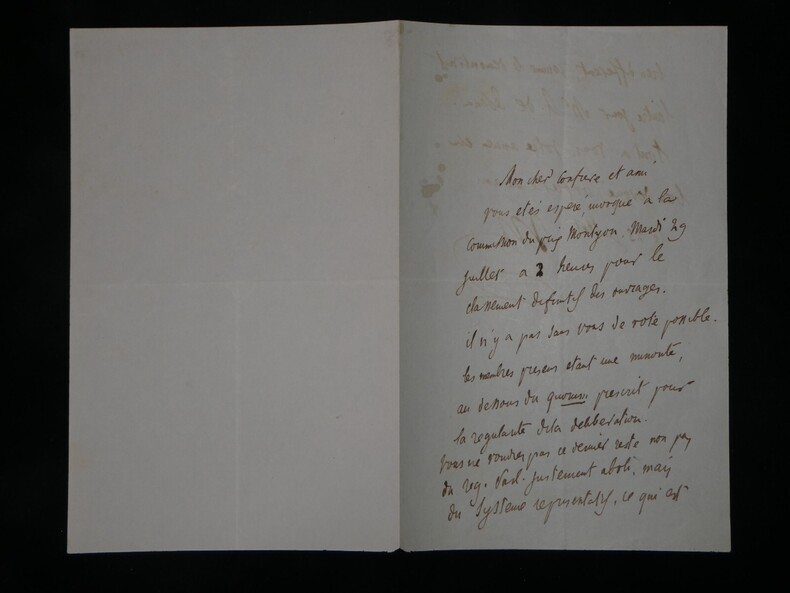 Mon cher confrere et ami
vous etes espéré, invoqué a la
commission du prix Montyon. Mardi 29
Juillet a 2 heures pour le
classement definitif des ouvrages.
il n'y a pas sans vous de vote possible.
les membres presens etant une minorité,
au dessous du quorum prescrit pour
la regularité de la deliberation.
vous ne voudrez pas ce dernier reste non pas
du reg. Parl. justement aboli, mais
du systeme representatif, ce qui est